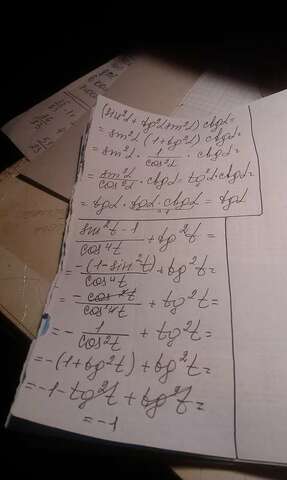 (sin²α + tg²α sin²α) ctgα =
= sin²α (1 + tg²α) ctgα =
= sin²α · 1/cos²α · ctgα =
= sin²α/cos²α · ctgα = tg²α · ctgα =
= tgα · tgα · ctgα = tgα
(sin²t - 1)/cos⁴t + tg²t =
= -(1 - sin²t)/cos⁴t + tg²t =
= -cos²t/cos⁴t + tg²t =
= - 1/cos²t + tg²t =
= -(1 + tg²t) + tg²t =
= -1 - tg²t + tg²t =
= -1